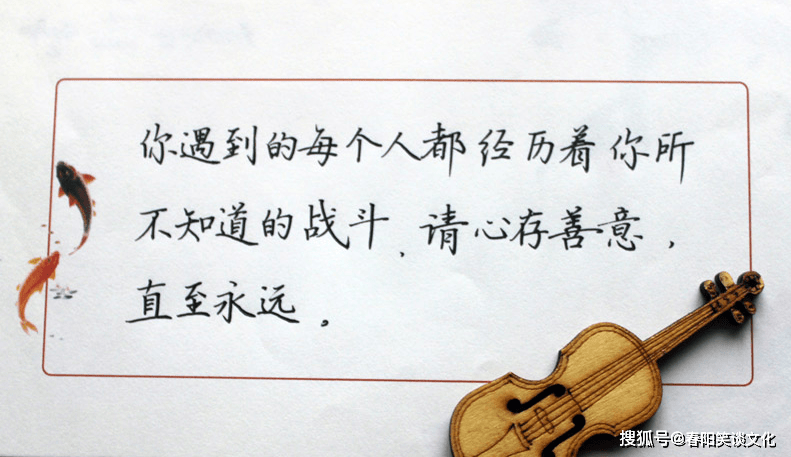 你遇到的每个人都经历着你所
不知道的战斗，请心存善意，
直至永远。
搜狐号@春阳笑谈文化